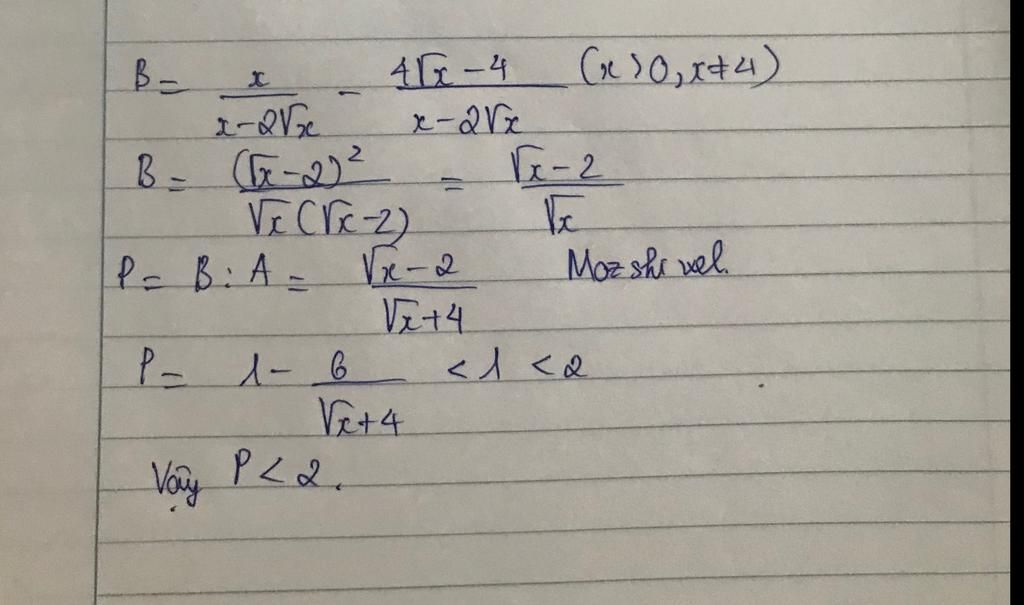 B = x/(x-2√x) - (4√x-4)/(x-2√x) (x>0, x≠4)
B = (√x-2)²/(√x(√x-2)) = (√x-2)/√x
P = B : A = (√x-2)/(√x+4)
P = 1 - 6/(√x+4) < 1 < 2
Vậy P < 2.